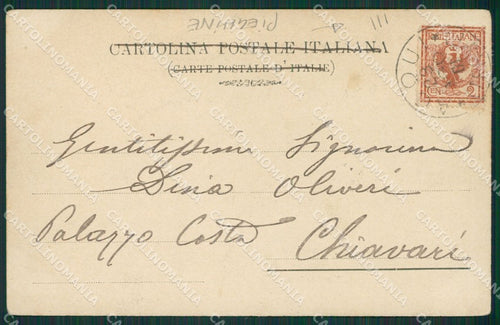 PIEGHINE
III
CARTOLINA POSTALE ITALIANA
(CARTE POSTALE D'ITALIE)
Gentilissima Signorina
Dina Oliveri
Palazzo Costa Chiavari
CARTOLINOMANIA